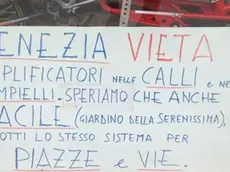 ENEZIA VIETA
PLIFICATORI NELLE CALLI E NE
MPIELLI. SPERIAMO CHE ANCHE
ACILE (GIARDINO DELLA SERENISSIMA),
OTTI LO STESSO SISTEMA PER
PIAZZE e VIE.